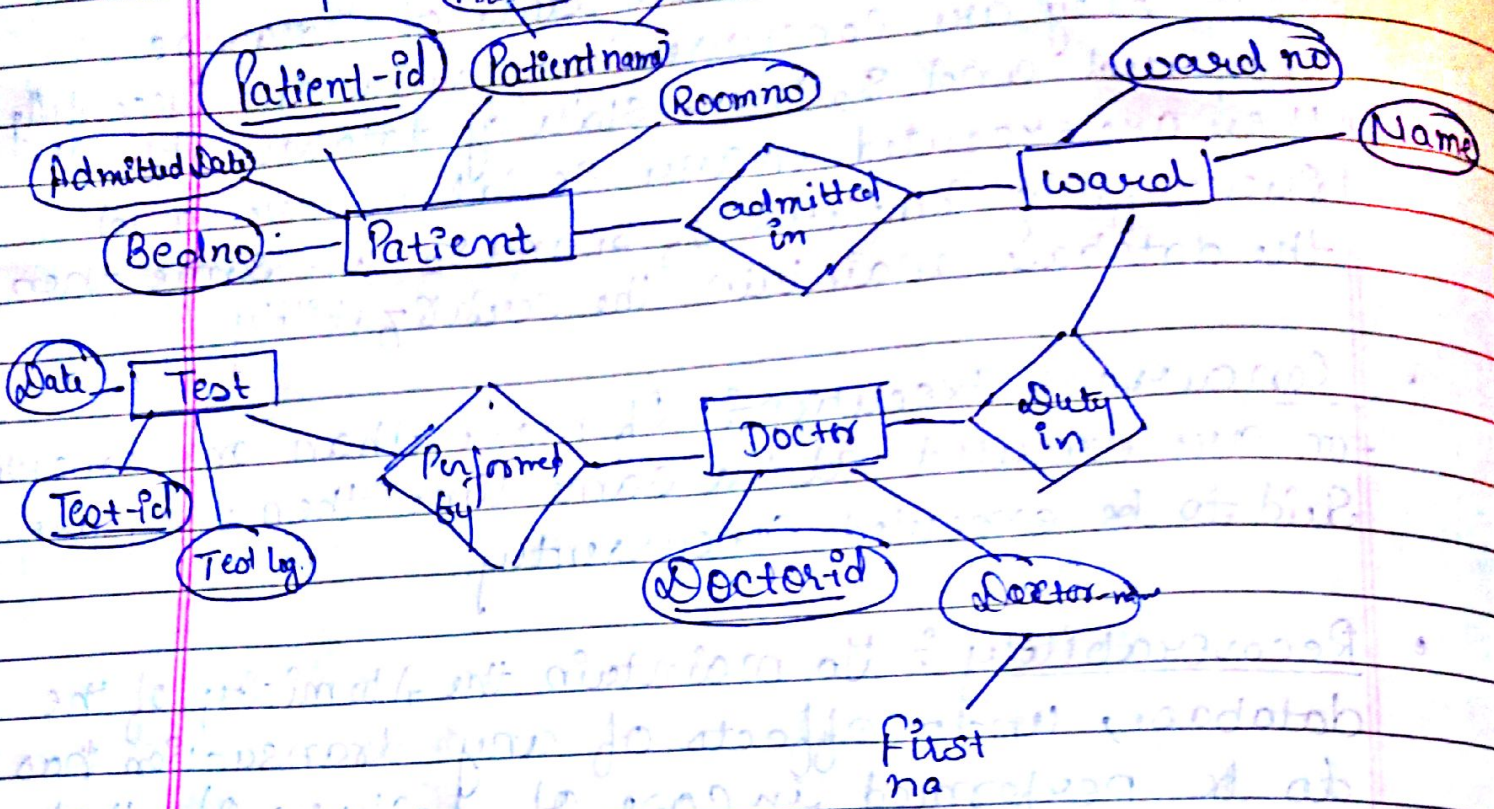 Patient-id
Patient name
Room no
ward no
Name
Admitted Date
Bedno
Patient
admitted
in
ward
Date
Test
Performed
by
Doctor
Duty
in
Test-id
Test log.
Doctor-id
First
na